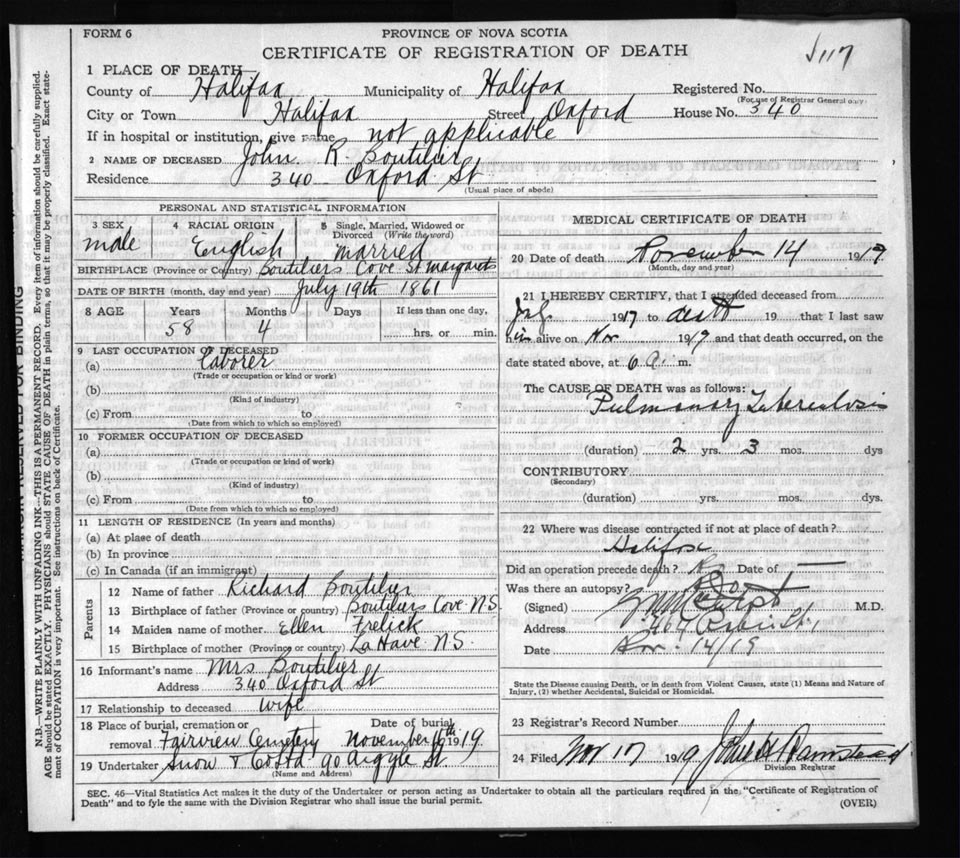 FORM 6
PROVINCE OF NOVA SCOTIA
CERTIFICATE OF REGISTRATION OF DEATH
1 PLACE OF DEATH
County of Halifax Municipality of Halifax Registered No.
(For use of Registrar General only)
City or Town Halifax Street Oxford House No. 340
If in hospital or institution, give name not applicable
2 NAME OF DECEASED John R. Boutilier
Residence 340 Oxford St
(Usual place of abode)
PERSONAL AND STATISTICAL INFORMATION
3 SEX 4 RACIAL ORIGIN 5 Single, Married, Widowed or Divorced (Write the word)
male English married
BIRTHPLACE (Province or Country) Boutiliers Cove St Margarets
DATE OF BIRTH (month, day and year) July 19th 1861
8 AGE Years Months Days If less than one day,
58 4 hrs. or min.
9 LAST OCCUPATION OF DECEASED
(a) Laborer
(Trade or occupation or kind of work)
(b)
(Kind of industry)
(c) From to
(Date from which to which so employed)
10 FORMER OCCUPATION OF DECEASED
(a)
(Trade or occupation or kind of work)
(b)
(Kind of industry)
(c) From to
(Date from which to which so employed)
11 LENGTH OF RESIDENCE (In years and months)
(a) At place of death
(b) In province
(c) In Canada (if an immigrant)
Parents
12 Name of father Richard Boutilier
13 Birthplace of father (Province or country) Boutiliers Cove N.S.
14 Maiden name of mother Ellen Frelick
15 Birthplace of mother (Province or country) La Have N.S.
16 Informant's name Mrs Boutilier
Address 340 Oxford St
17 Relationship to deceased wife
18 Place of burial, cremation or removal Fairview Cemetery Date of burial November 16th 1919
19 Undertaker Snow & Co Ltd 90 Argyle St
(Name and Address)
MEDICAL CERTIFICATE OF DEATH
20 Date of death November 14 1919
(Month, day and year)
21 I HEREBY CERTIFY, that I attended deceased from
1917 to death 19 that I last saw
him alive on Nov 1919 and that death occurred, on the
date stated above, at 6 a. m.
The CAUSE OF DEATH was as follows:
Pulmonary Tuberculosis
(duration) 2 yrs. 3 mos. dys
CONTRIBUTORY
(Secondary)
(duration) yrs. mos. dys.
22 Where was disease contracted if not at place of death?
Halifax
Did an operation precede death? No Date of
Was there an autopsy? No
(Signed) M.D.
Address
Date Nov. 14/19
State the Disease causing Death, or in death from Violent Causes, state (1) Means and Nature of
Injury, (2) whether Accidental, Suicidal or Homicidal.
23 Registrar's Record Number
24 Filed Nov 17 1919
Division Registrar
SEC. 46—Vital Statistics Act makes it the duty of the Undertaker or person acting as Undertaker to obtain all the particulars required in the "Certificate of Registration of
Death" and to fyle the same with the Division Registrar who shall issue the burial permit.
(OVER)
MARGIN RESERVED FOR BINDING
N.B.—WRITE PLAINLY WITH UNFADING INK—THIS IS A PERMANENT RECORD. Every item of information should be carefully supplied.
AGE should be stated EXACTLY. PHYSICIANS should STATE CAUSE OF DEATH in plain terms, so that it may be properly classified. Exact state-
ment of OCCUPATION is very important. See instructions on back of Certificate.